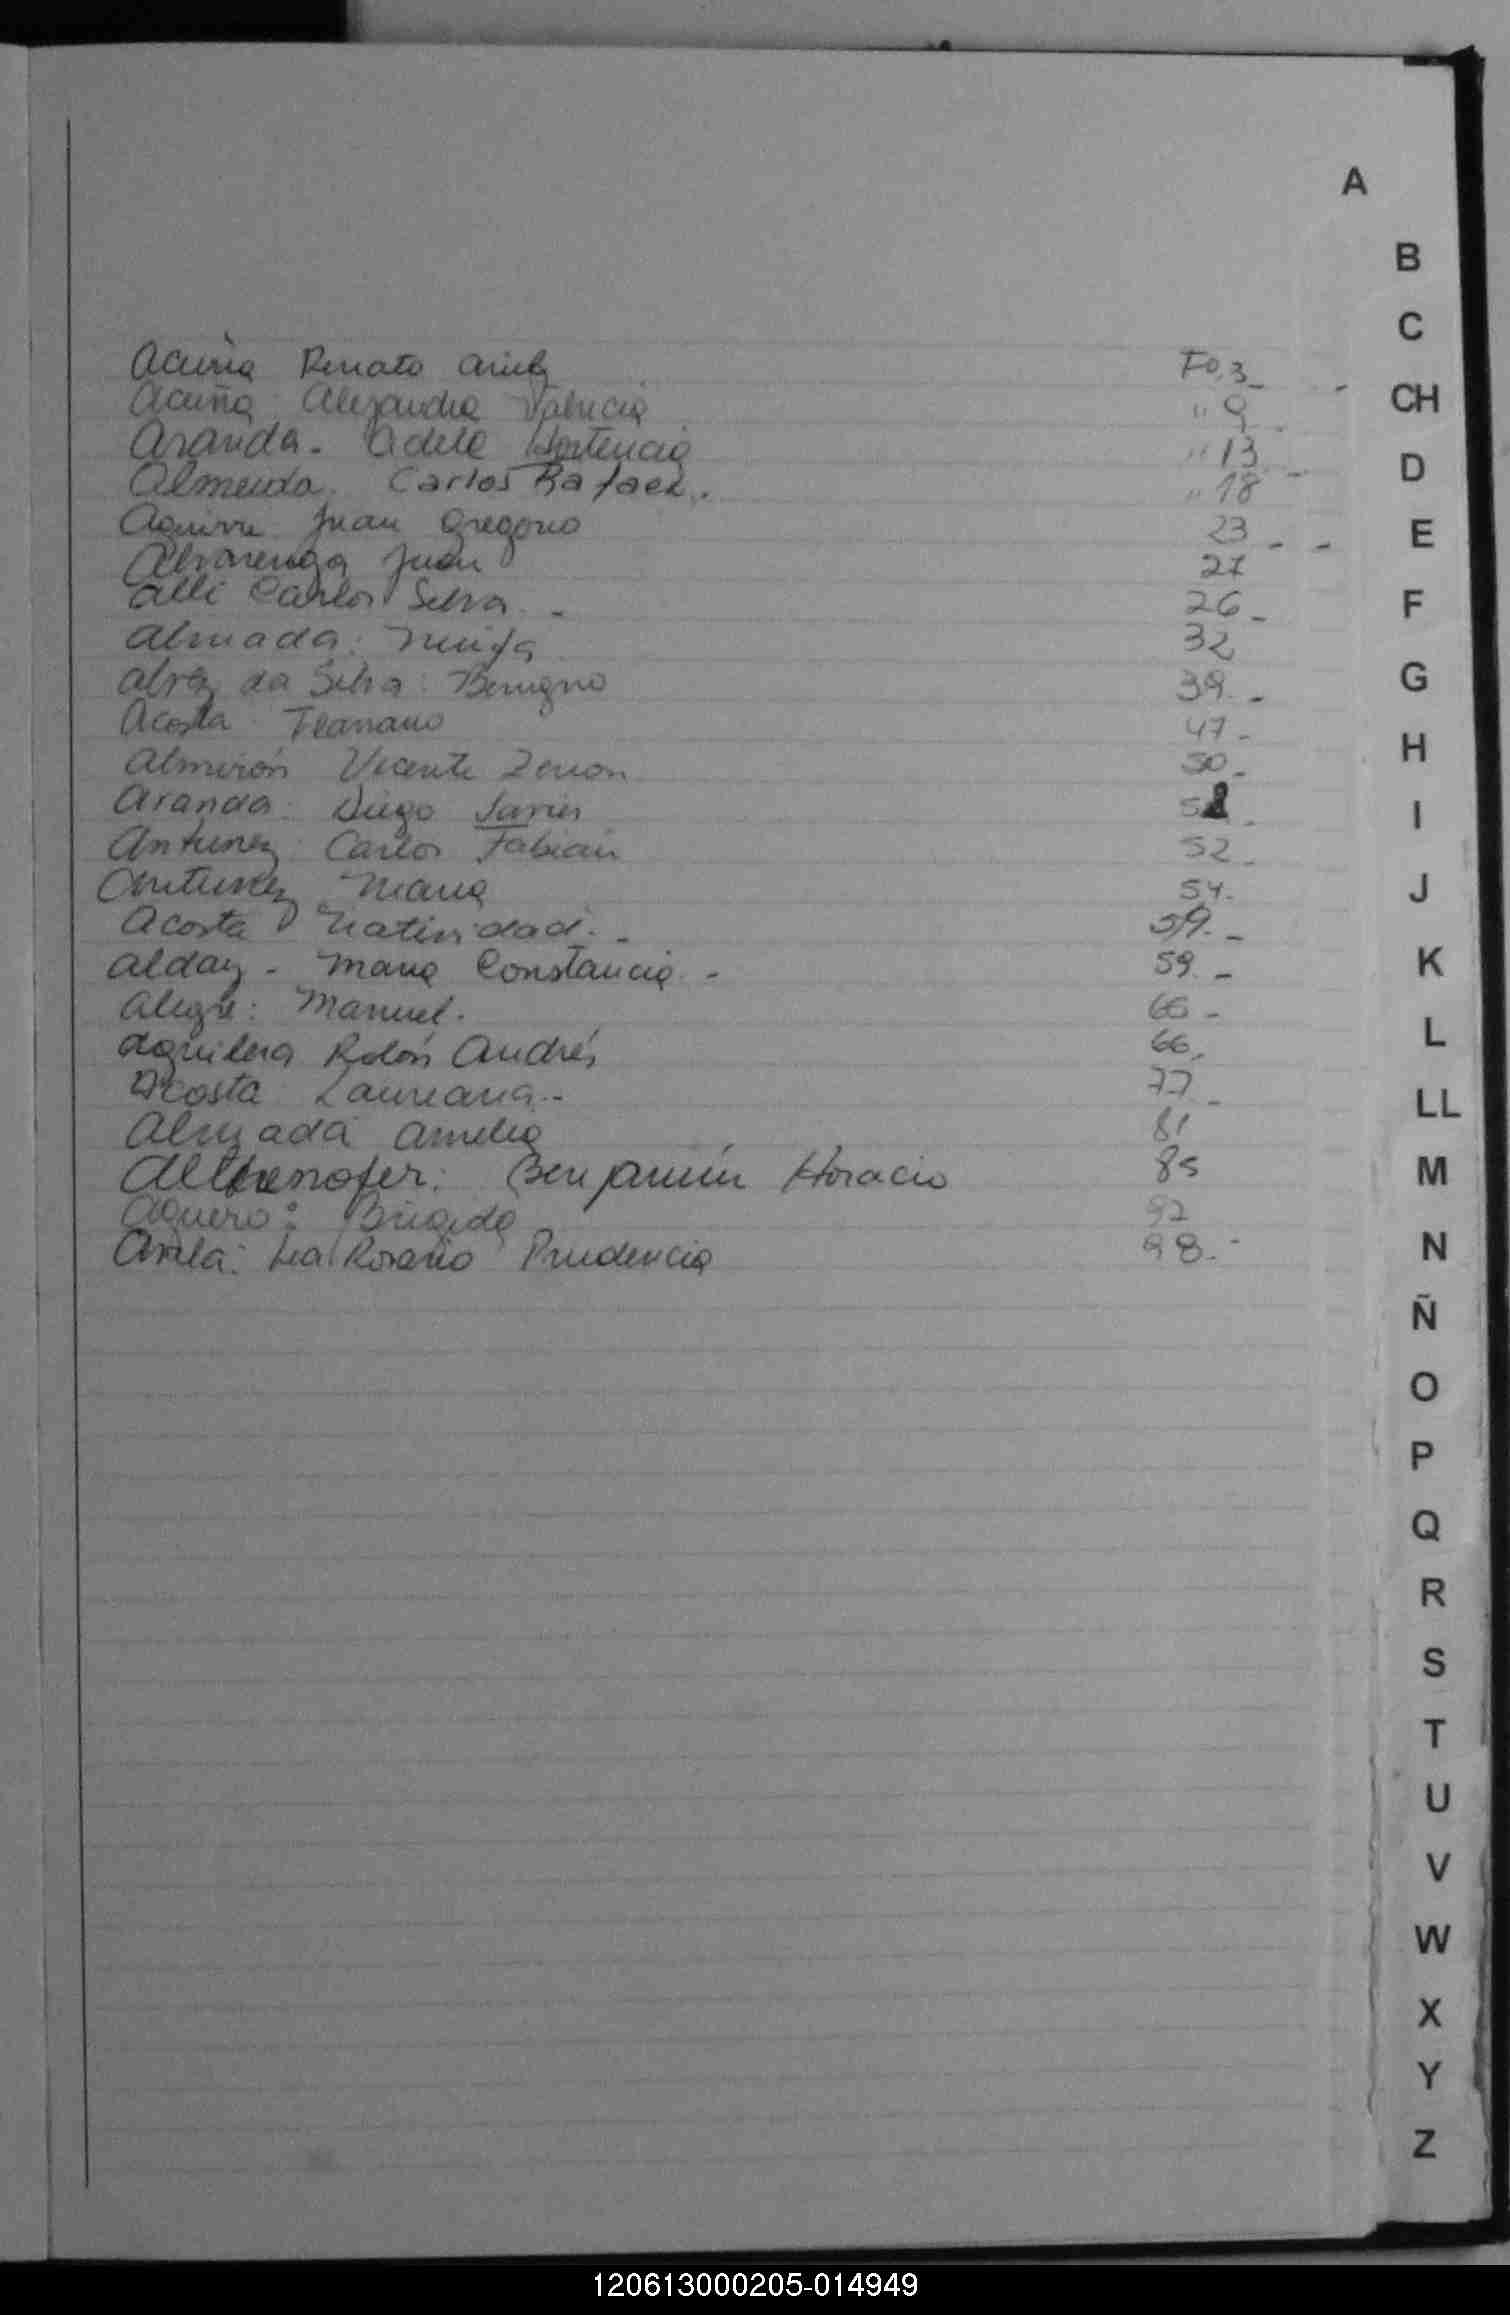 A
B
C
CH
D
E
F
G
H
I
J
K
L
LL
M
N
Ñ
O
P
Q
R
S
T
U
V
W
X
Y
Z
Acuña Renato Fo. 3_ -
Acuña Alejandra " 9
Aranda. Adela Hortencia " 13 -
Almeida. Carlos Rafael. " 18
Aguirre Juan Gregorio 23 - -
Alvarenga Juan 27
Alli Carlos Silva. - 26 -
Almada: Ninfa 32
Alvez da Silva: Benigno 39. -
Acosta 47 -
Almirón Vicente Zenon 50 -
Aranda: Diego Javier
Antunez: Carlos Fabian 52 -
Antunez Maria 54.
Acosta Natividad. - 59. -
Alday - Maria Constancia. - 59. -
Alegre: Manuel. 66 -
Aguilera Rolón Andrés 66.
Acosta Laureana.- 77 -
Almada Amelia 81
Benjamín Horacio 85
Aguero: Brigida 92
Avila: Rosario Prudencia 98. -
120613000205-014949